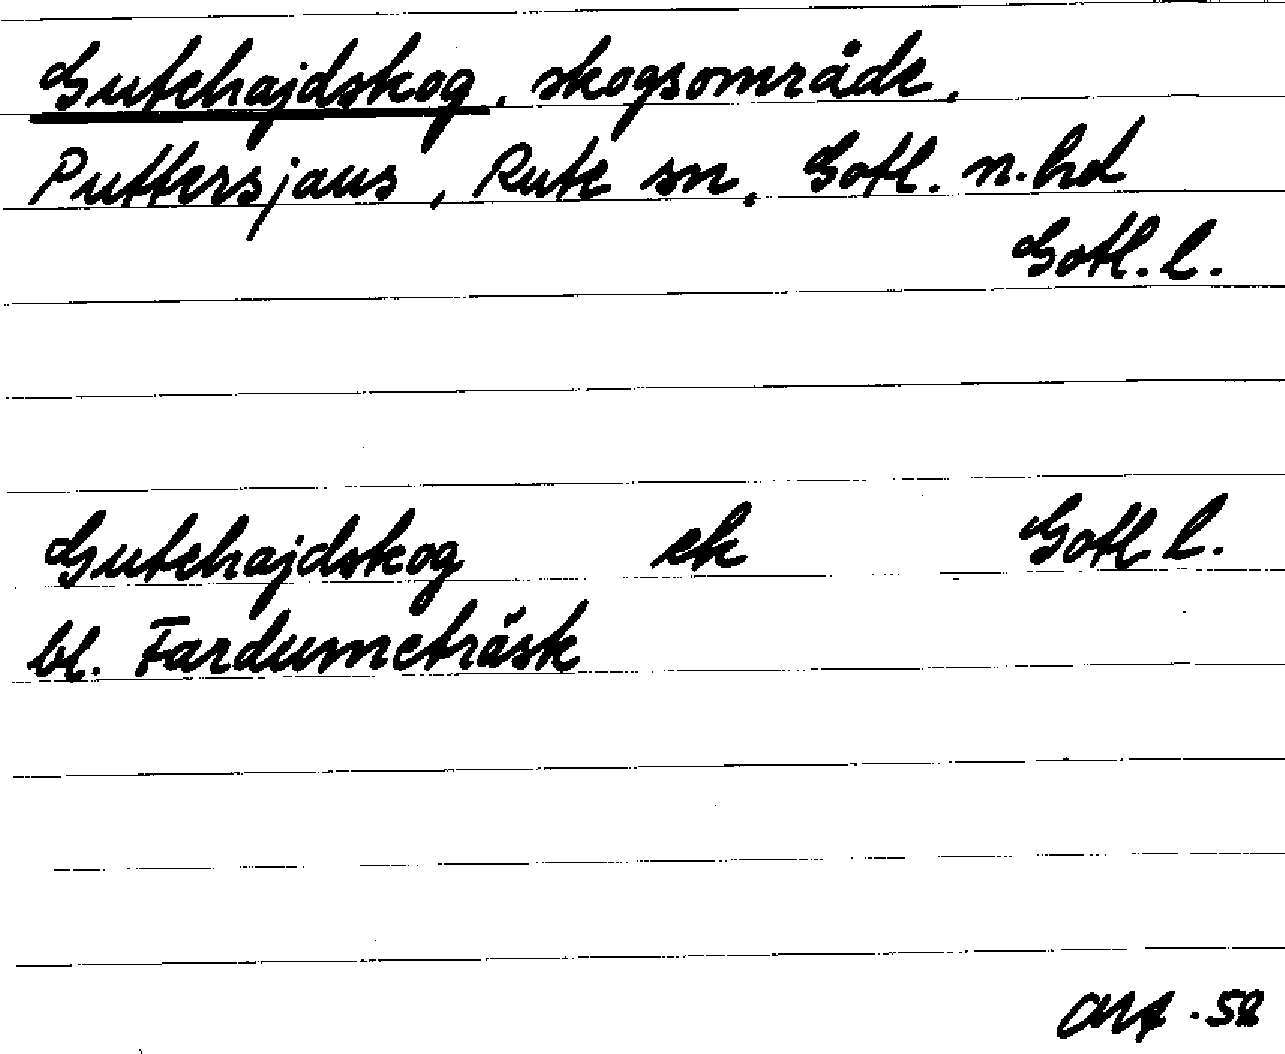 Gutehajdskog, skogsområde,
Puttersjaus, Rute sn, Gotl. n. hd
Gotl. l.
Gutehajdskog ek Gotl l.
bl. Fardumeträsk
-52